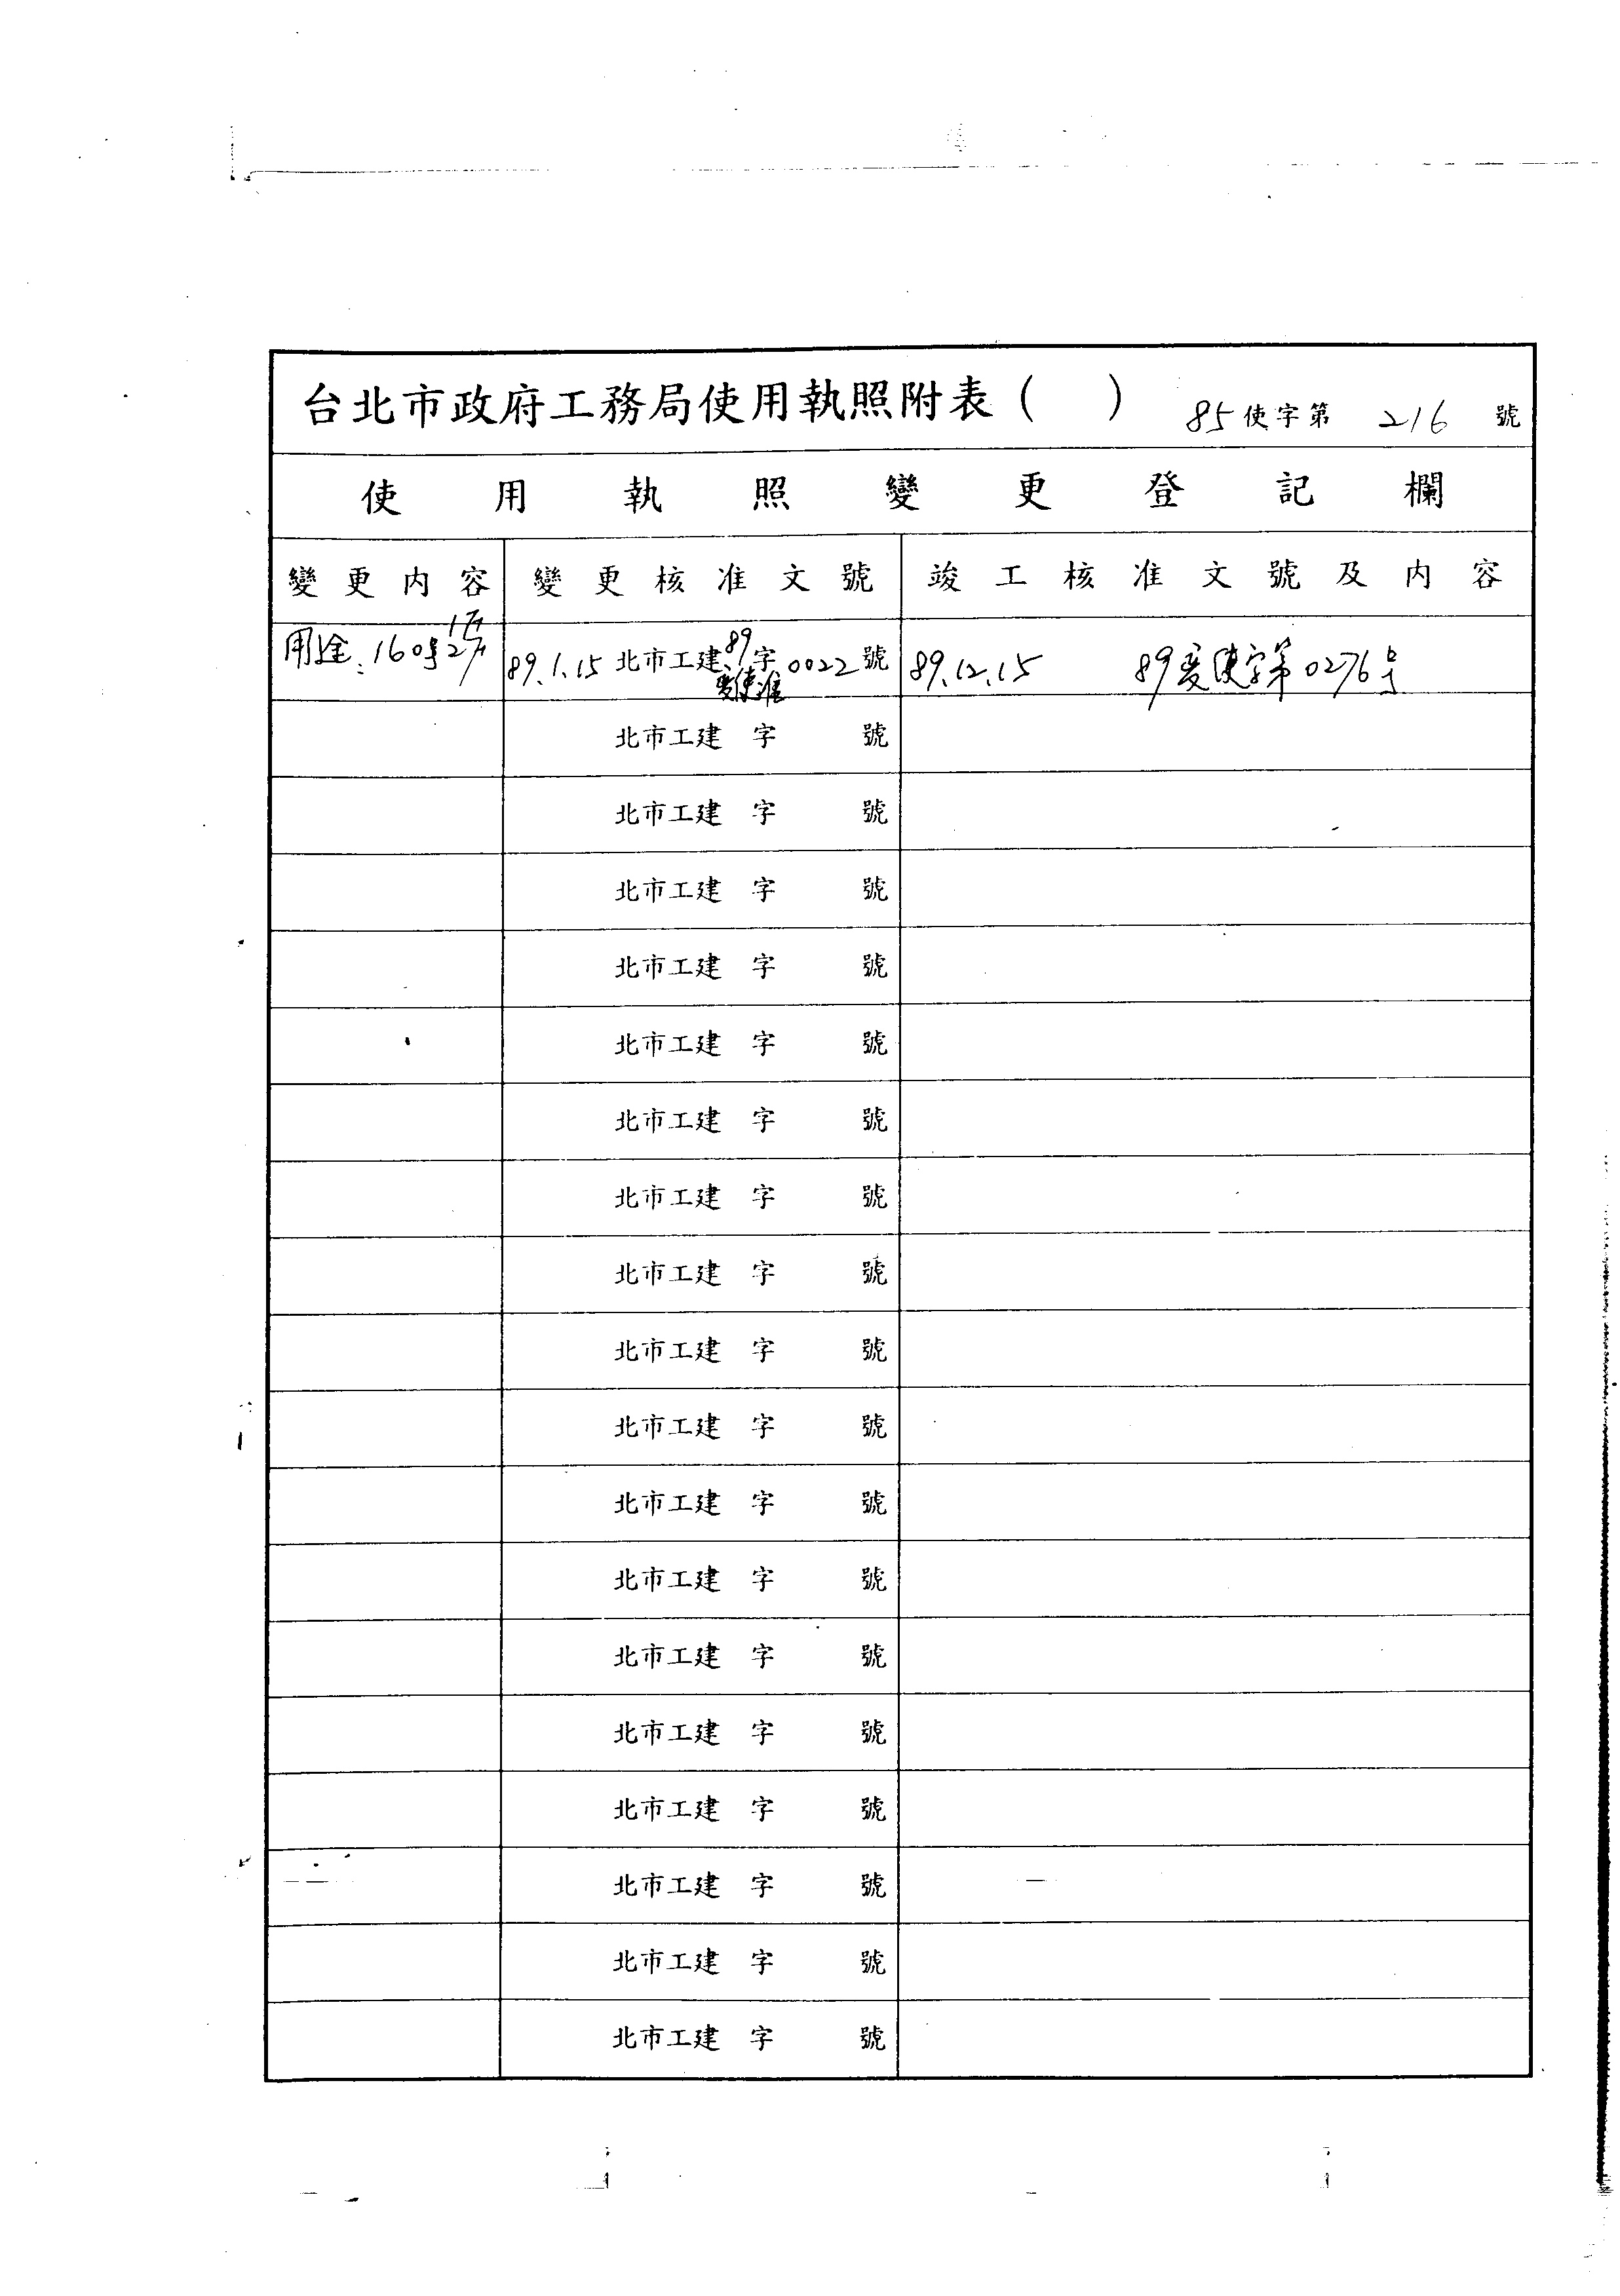 台北市政府工務局使用執照附表（　） 85使字第 216 號
使用執照變更登記欄
變更內容 變更核准文號 竣工核准文號及內容
用途.160号1F 2F 89.1.15 北市工建89變使准字0022號 89.12.15 89变使字第0276号
北市工建 字 號
北市工建 字 號
北市工建 字 號
北市工建 字 號
北市工建 字 號
北市工建 字 號
北市工建 字 號
北市工建 字 號
北市工建 字 號
北市工建 字 號
北市工建 字 號
北市工建 字 號
北市工建 字 號
北市工建 字 號
北市工建 字 號
北市工建 字 號
北市工建 字 號
北市工建 字 號